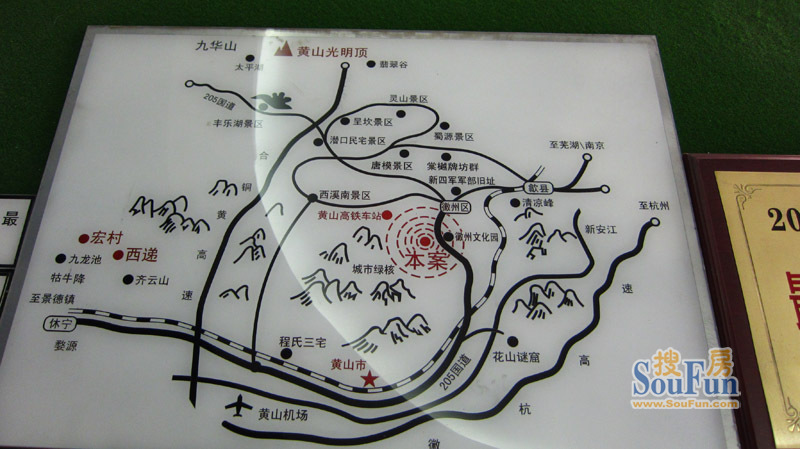 九华山
黄山光明顶
太平湖
翡翠谷
205国道
灵山景区
丰乐湖景区
呈坎景区
蜀源景区
潜口民宅景区
至芜湖\南京
唐模景区
棠樾牌坊群
新四军军部旧址
歙县
铜
黄
高
速
西溪南景区
徽州区
清凉峰
至杭州
黄山高铁车站
新安江
徽州文化园
宏村
西递
本案
九龙池
城市绿核
牯牛降
齐云山
至景德镇
休宁
婺源
程氏三宅
黄山市
205国道
花山谜窟
黄山机场
徽
杭
高
速
最
20
搜房
SouFun
www.SouFun.com